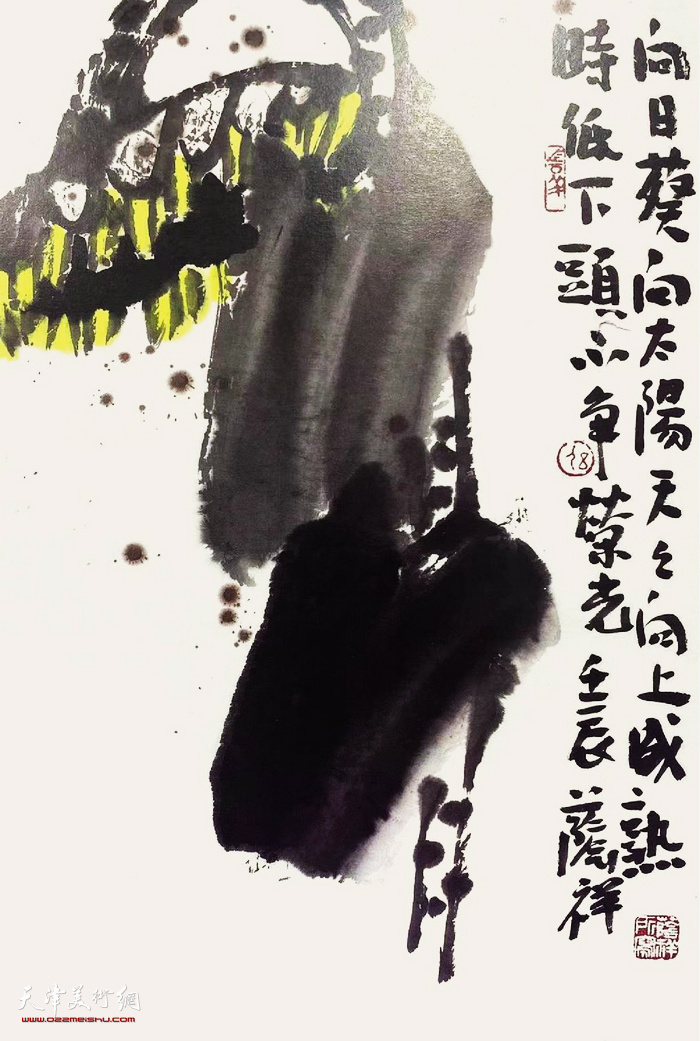 向日葵向太陽天天向上成熟
時低下頭不争荣光壬辰蔭祥
蔭祥
天津美術網
www.022meishu.com